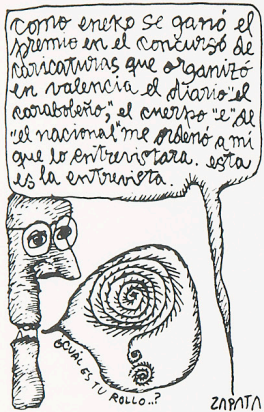 como eneko se ganó el
premio en el concurso de
caricaturas que organizó
en valencia el diario "el
caraboleño", el cuerpo "e" de
"el nacional" me ordenó a mi
que lo entrevistara. esta
es la entrevista.
¿CUÁL ES TU ROLLO..?
ZAPATA